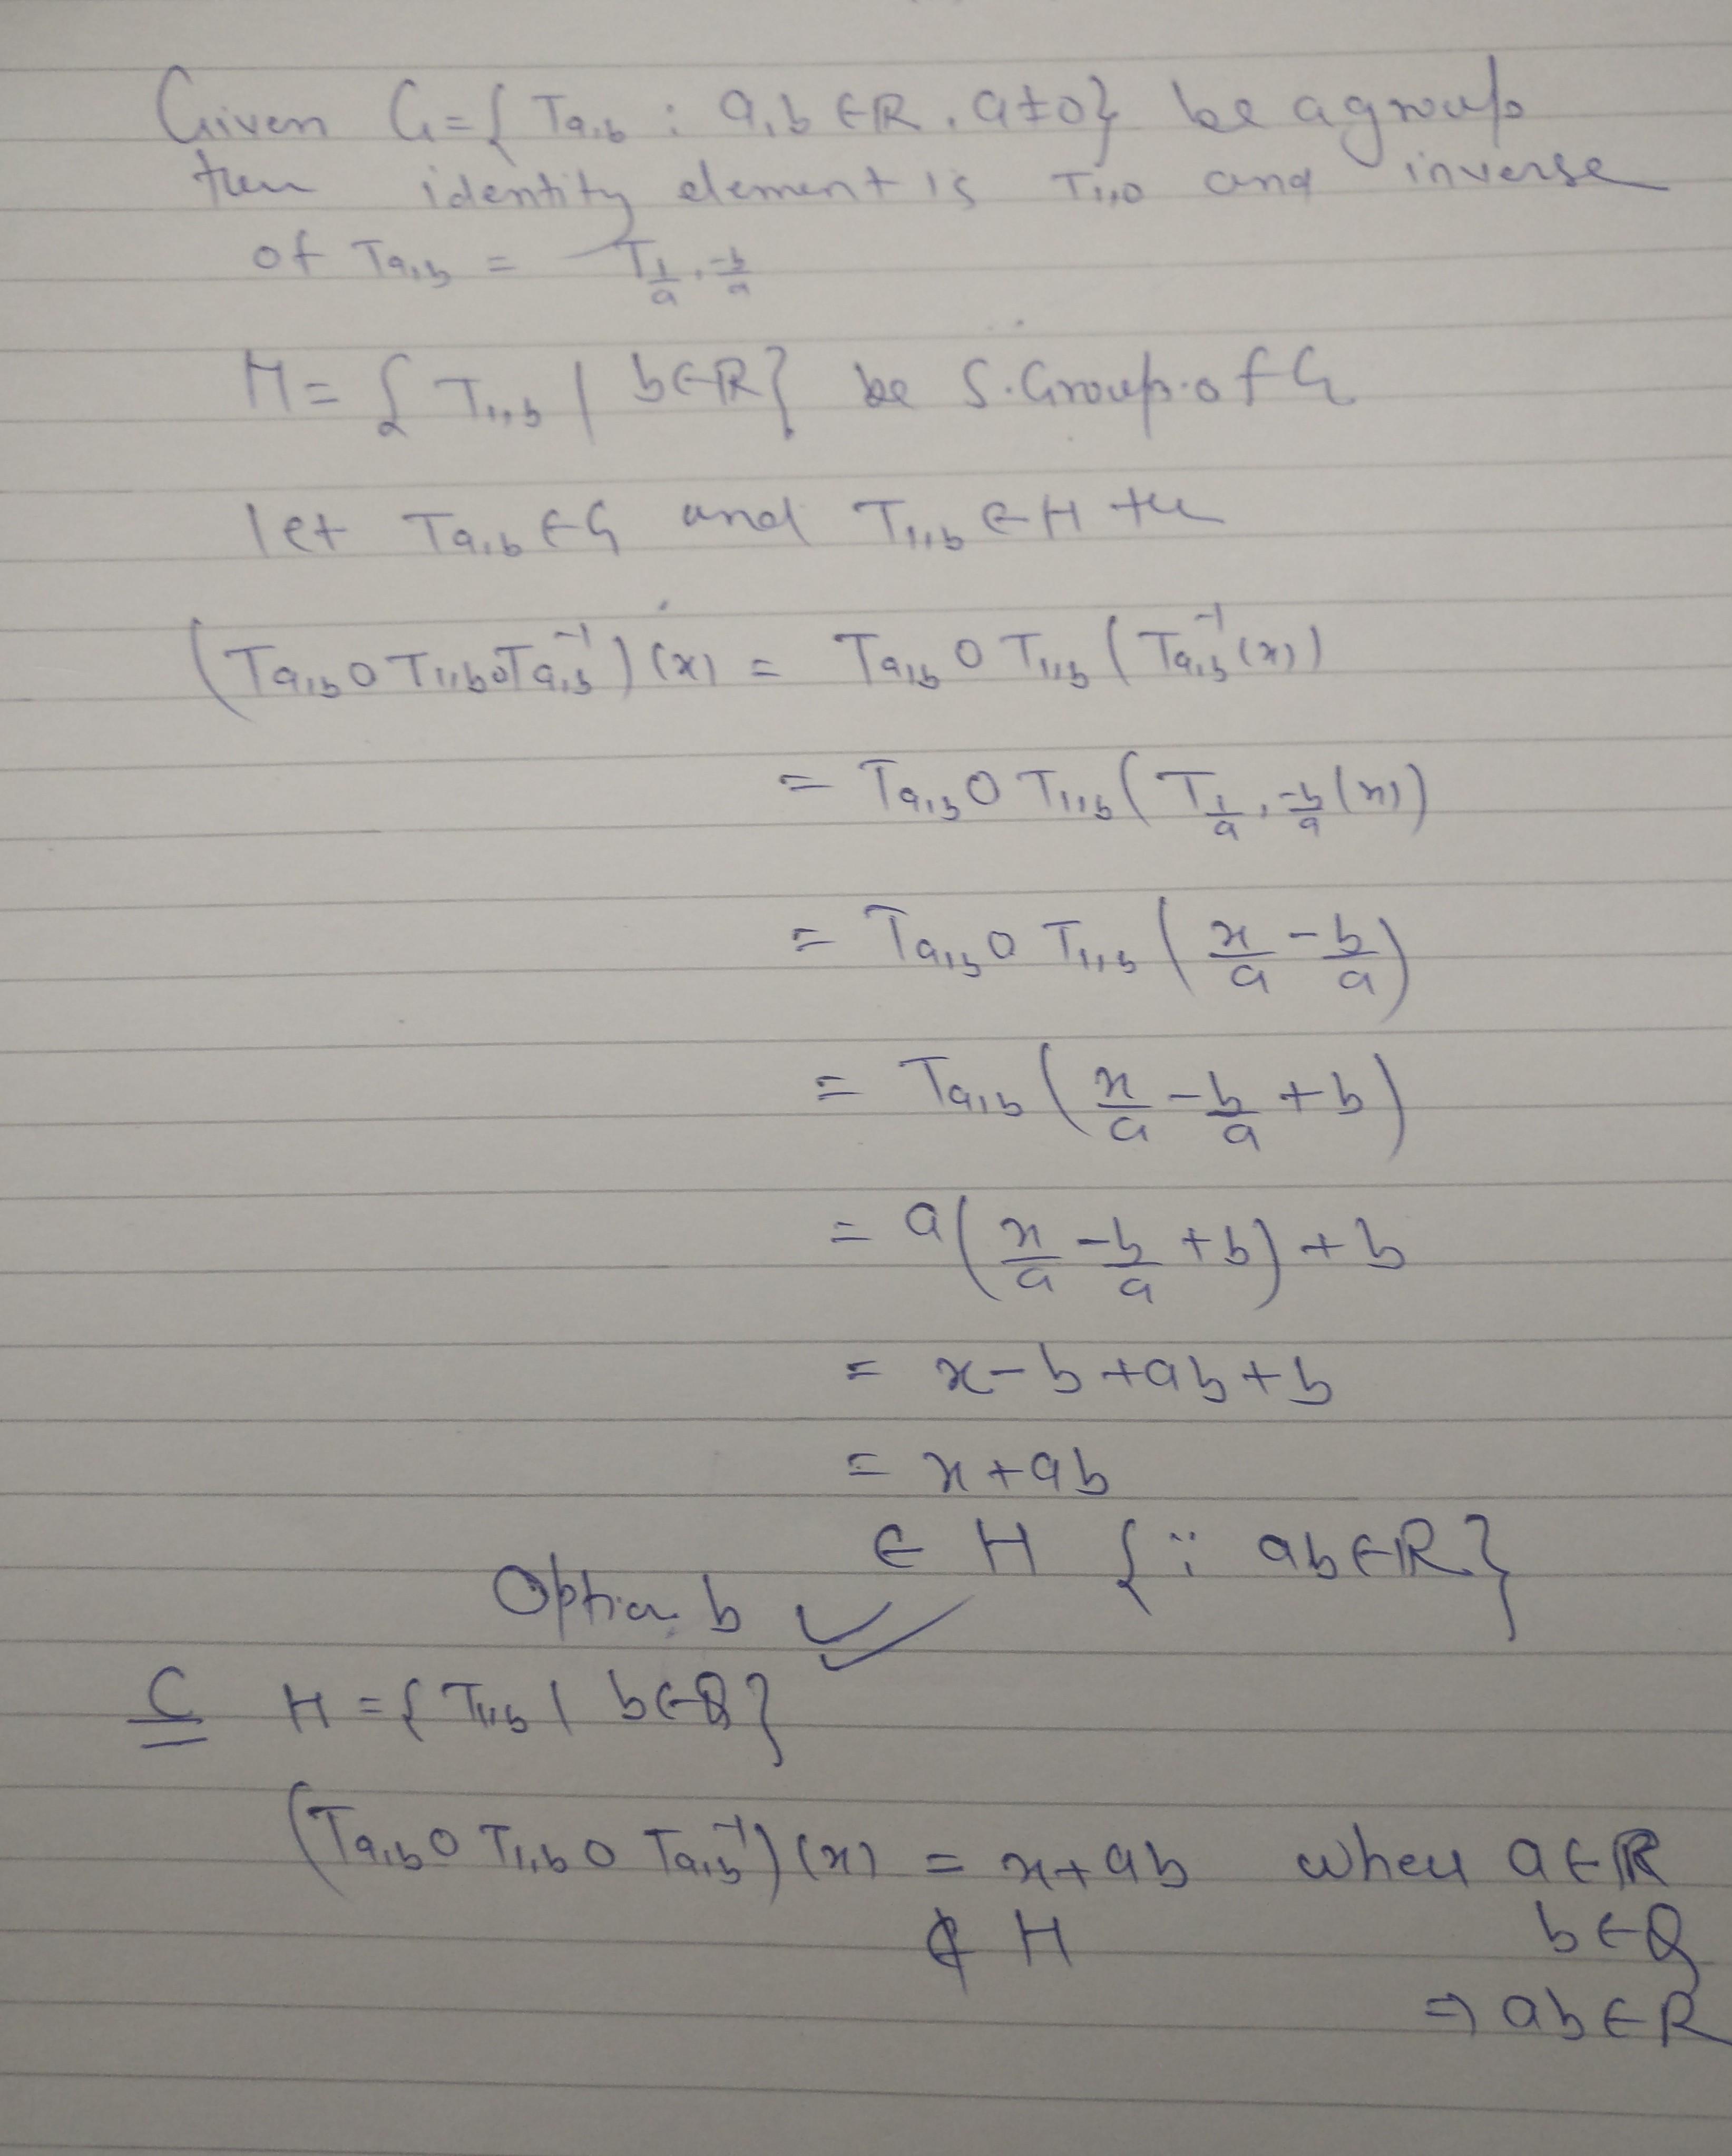 Given G={ Ta,b : a,b ∈ R, a≠0} be a group
then identity element is T1,0 and inverse
of Ta,b = T1/a, -b/a
H = { T1,b | b∈R} be S.Group of G
let Ta,b ∈ G and T1,b ∈ H the
(Ta,b o T1,b o Ta,b⁻¹) (x) = Ta,b o T1,b ( Ta,b⁻¹ (x))
= Ta,b o T1,b ( T1/a, -b/a (x))
= Ta,b o T1,b ( x/a - b/a )
= Ta,b ( x/a - b/a + b )
= a ( x/a - b/a + b ) + b
= x - b + ab + b
= x + ab
∈ H { ∵ ab ∈ R }
Option b ✓
C H = { T1,b | b ∈ Q }
(Ta,b o T1,b o Ta,b⁻¹) (x) = x + ab when a ∈ R
∉ H b ∈ Q
⇒ ab ∈ R